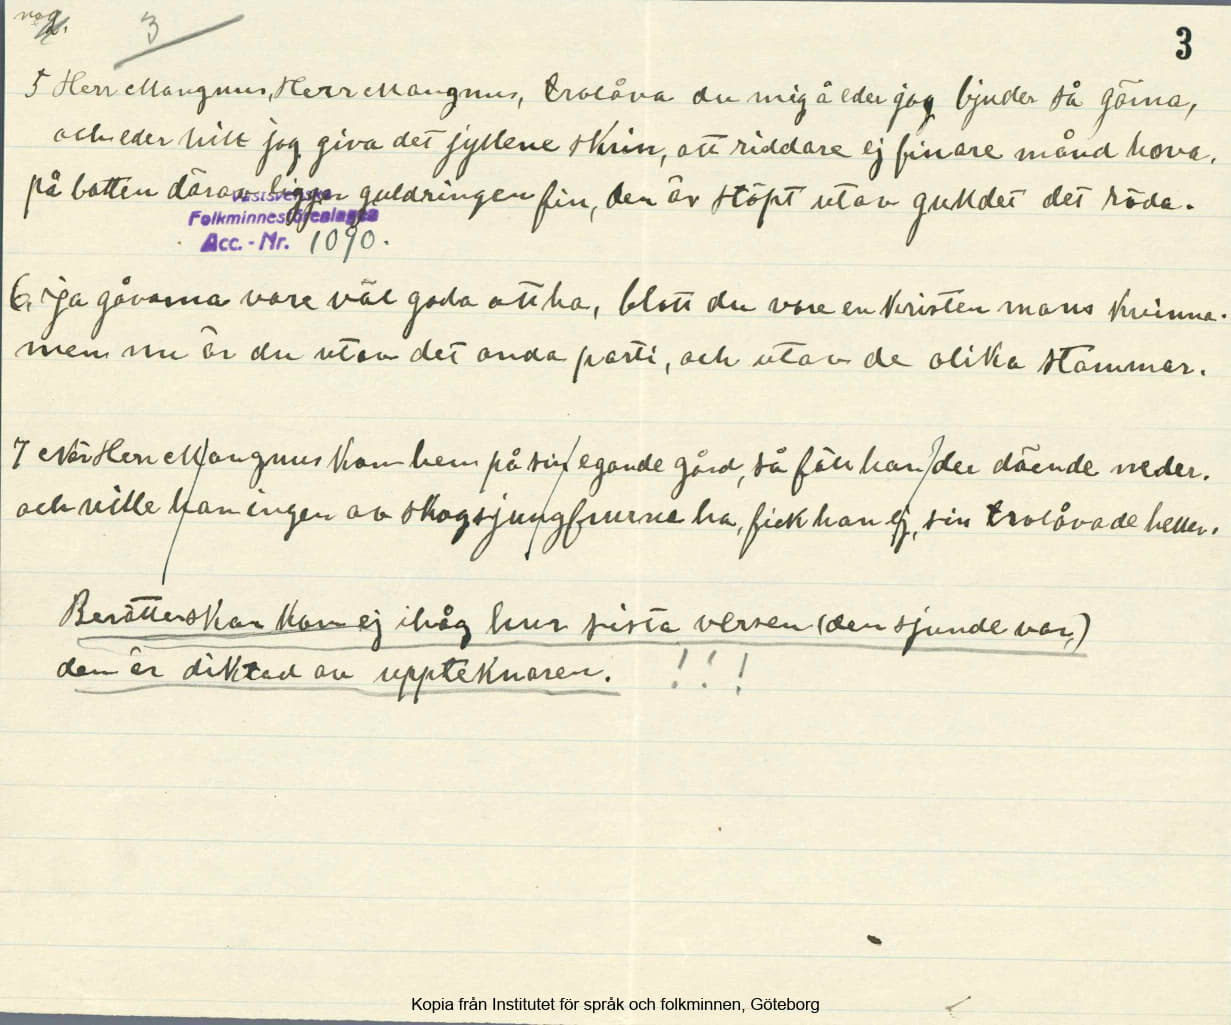 3
3
5 Herr Mangnus, Herr Mangnus, trolåva du mig å eder jag bjuder så gärna,
och eder vill jag giva det jyllene skrin, att riddare ej finare månd hava,
på botten därav ligger guldringen fin, den är stöpt utav gulldet det röda.
Västsvenska
Folkminnesföreningen
Acc. - Nr. 1090.
6, ja gåvorna vore väl goda att ha, blott du vore en kristen mans kvinna.
men nu är du utav det onda parti, och utav de olika stammar.
7 När Herr Mangnus kom hem på sin egande gård, så föll han der döende neder.
och ville han ingen av skogsjungfrurna ha, fick han ej, sin trolåvade heller.
Berätterskan kom ej ihåg hur sista versen (den sjunde var,)
den är diktad av uppteknaren. !!!
Kopia från Institutet för språk och folkminnen, Göteborg